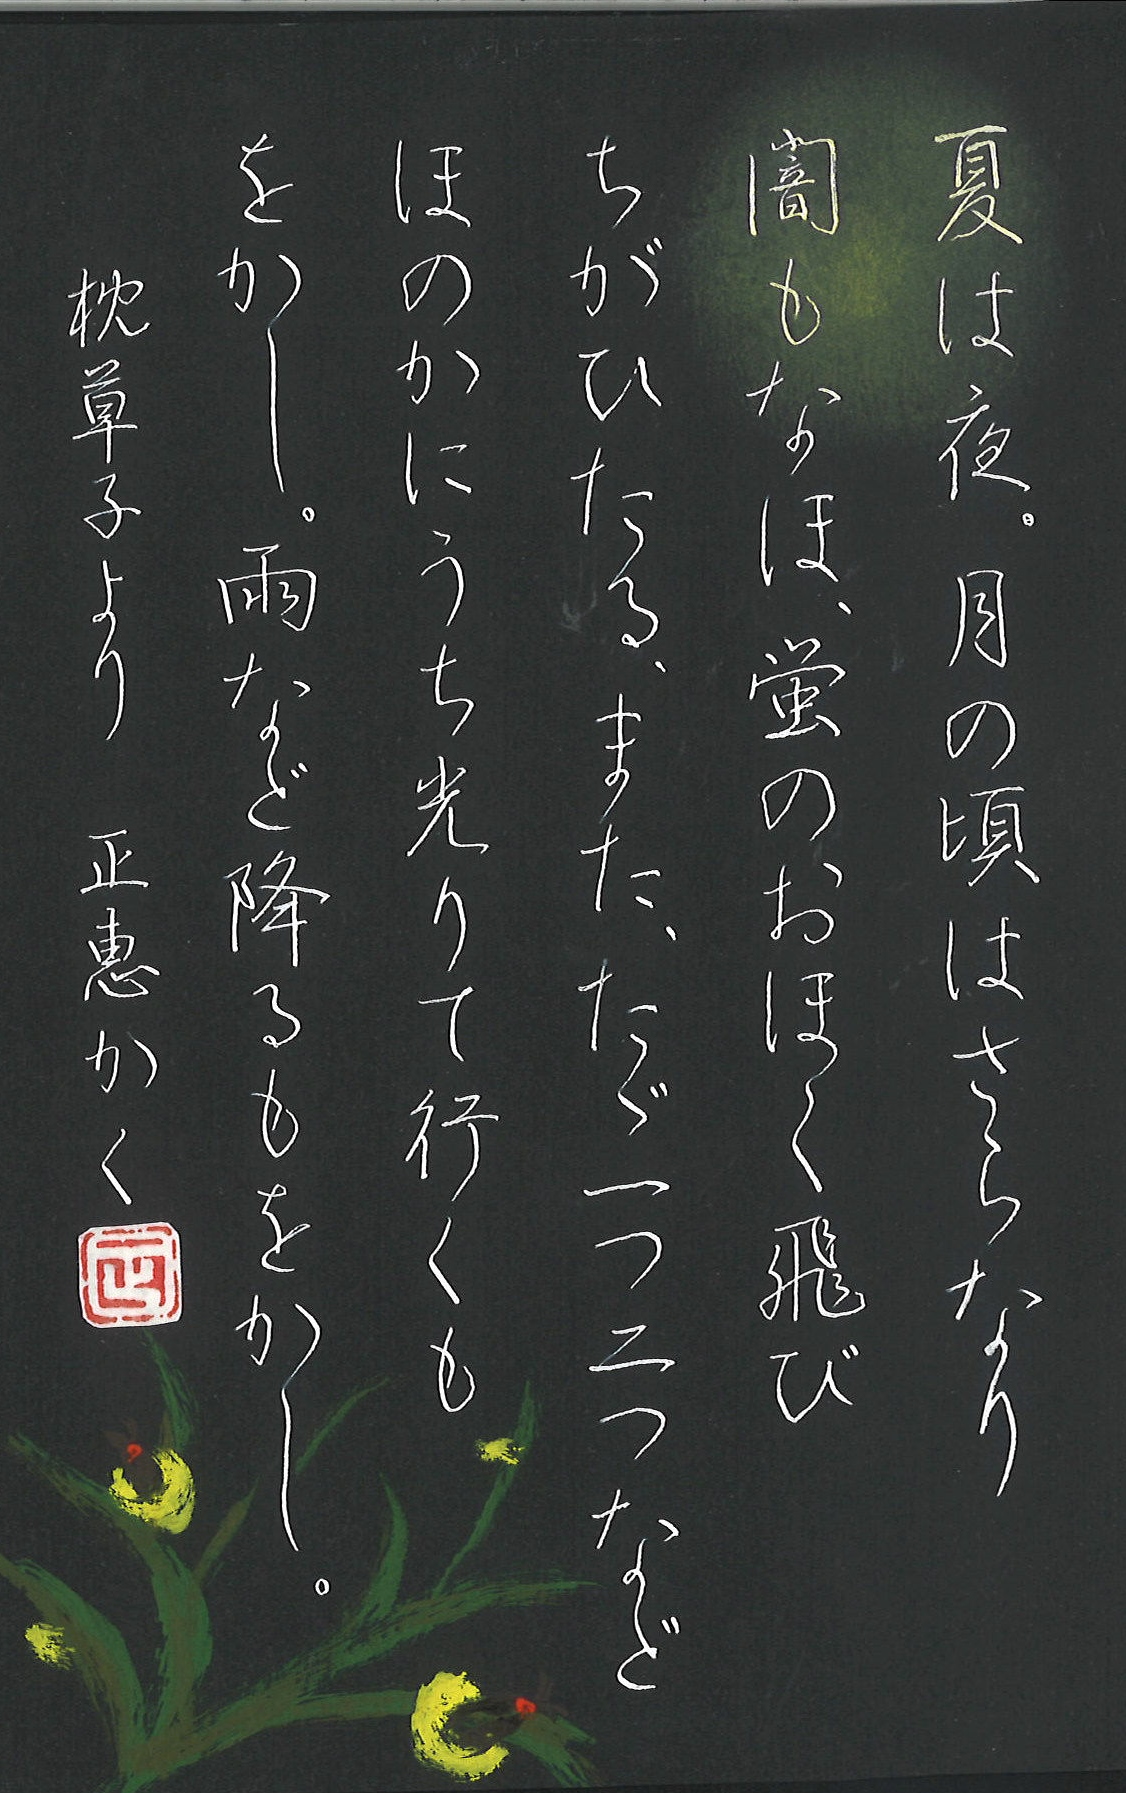 夏は夜。月の頃はさらなり
闇もなほ、蛍のおほく飛び
ちがひたる、また、たゞ一つ二つなど
ほのかにうち光りて行くも
をかし。雨など降るもをかし。
枕草子より 正恵かく
正